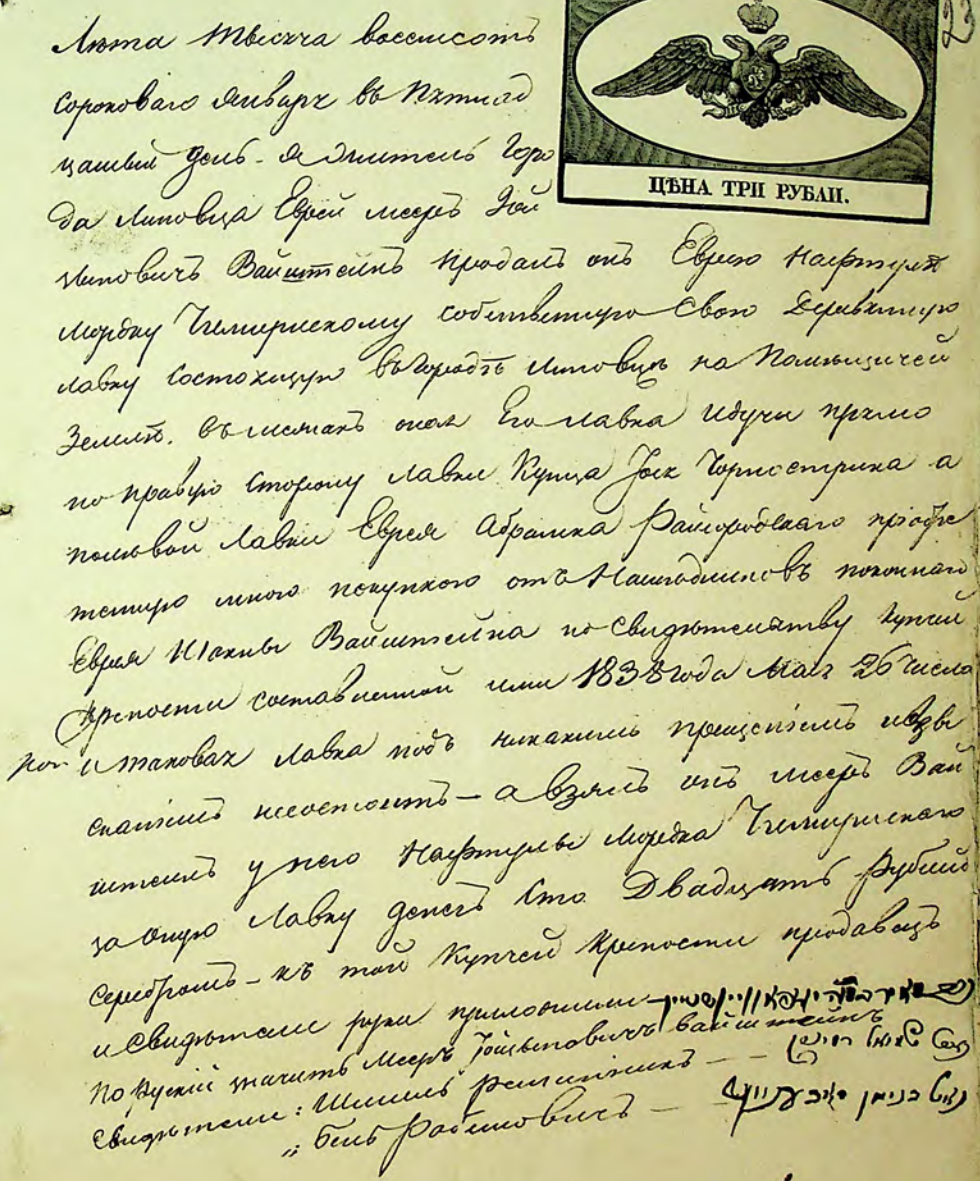 23
Лѣта тысяча восемсотъ
сороковаго Января въ пятнад
цатый день - Я житель Горо
ЦѢНА ТРИ РУБЛИ.
да Липовца Еврей Мееръ Іой
повичъ Вайштейнъ продалъ онъ Еврею Нафтулѣ
Мордку Чемирискому собственную свою Деревянную
лавку состоящую въ городѣ Липовцѣ на Помѣщичей
Землѣ. Въ межахъ оная Его лавка идучи прямо
по правую сторону лавки Купца Чорноструха а
полѣвой лавки Еврея Абрамка Райгородскаго пріобре
тенную мною покупкою отъ Наслѣдниковъ покойнаго
Еврея Вайштейна по свидѣтельству купчей
крепости составленной ими 1838 года Мая 26 числа
и таковая лавка подъ никакимъ прещеніемъ и взы
сканіемъ несостоитъ - а взялъ онъ Мееръ Вай
штейнъ у него Нафтулы Мордка Чемирискаго
за оную лавку денегъ сто Двадцать рублей
серебромъ - къ той Купчей крепости продавецъ
и свидѣтели руки приложили
по Рускіи значитъ Мееръ Вайштейнъ
свидѣтели: Шмиль
„ Бень Рабиновичъ -